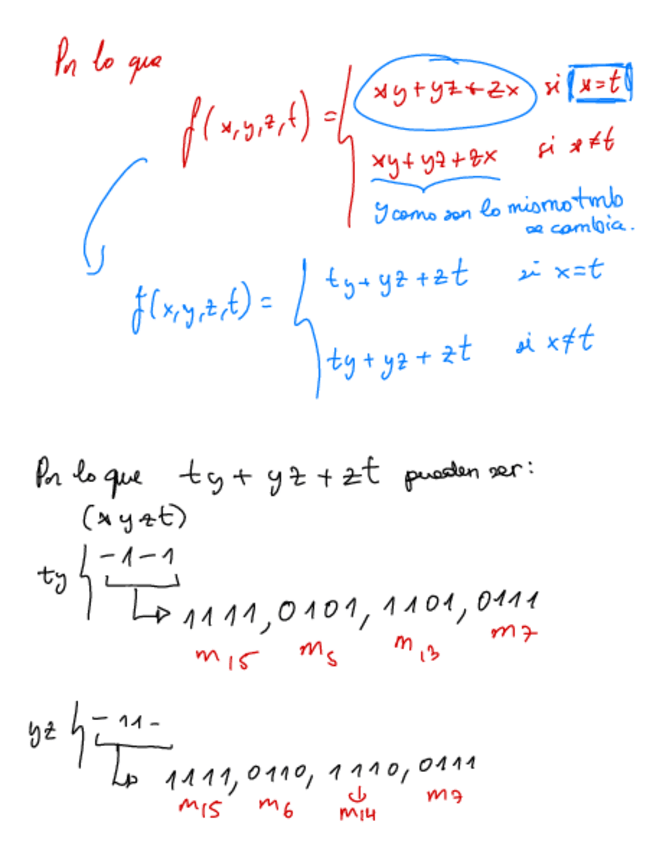 Por lo que
f(x,y,z,t) = { xy+yz+zx si x=t
xy+yz+zx si x≠t
y como son lo mismo tmb
se cambia.
f(x,y,z,t) = { ty+yz+zt si x=t
ty+yz+zt si x≠t
Por lo que ty+yz+zt pueden ser:
(xyzt)
ty { -1-1
1111, 0101, 1101, 0111
m15 m5 m13 m7
yz { -11-
1111, 0110, 1110, 0111
m15 m6 m14 m7